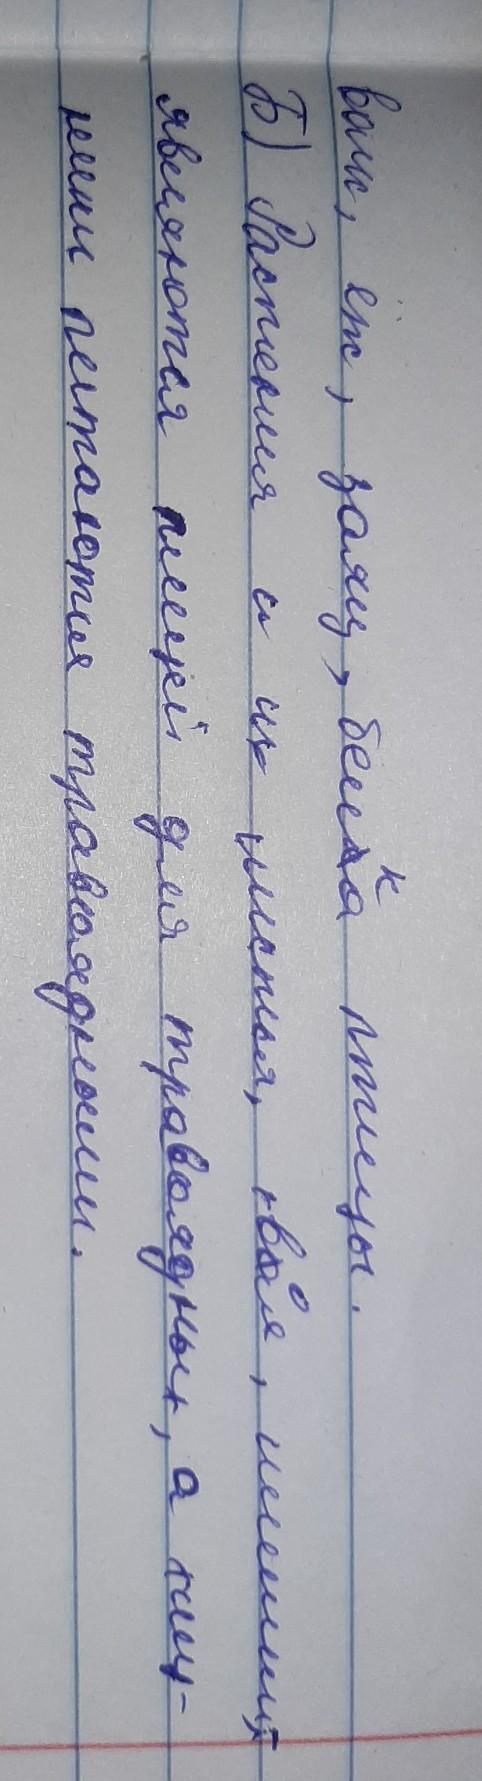 волк, ёж, заяц, белка птицы.
Б) Растения и их листья, хвоя,
являются пищей для травоядных, а хищ-
ники питаются травоядными.